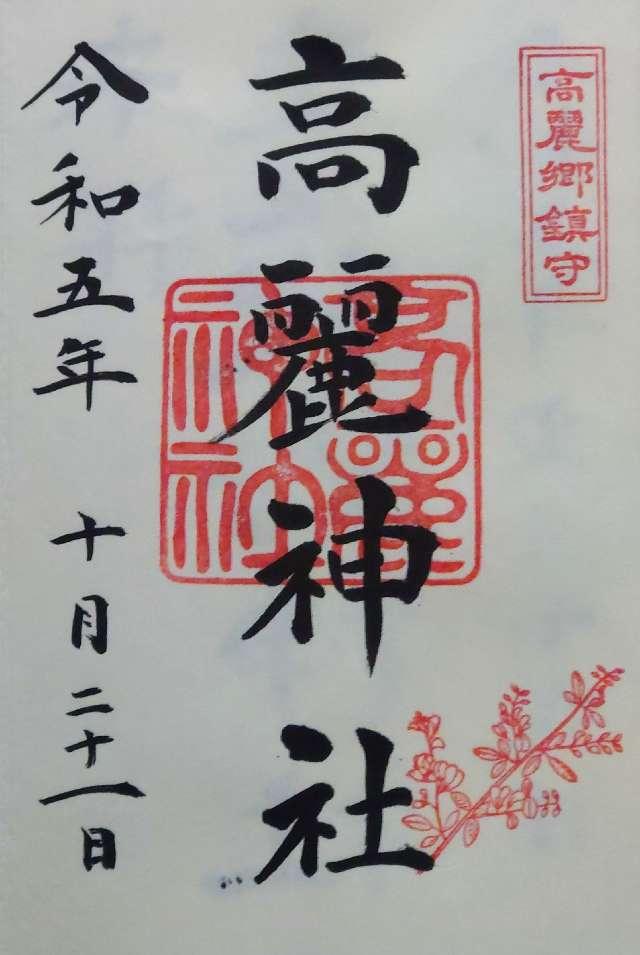 高麗郷鎮守
高麗神社
令和五年 十月二十一日